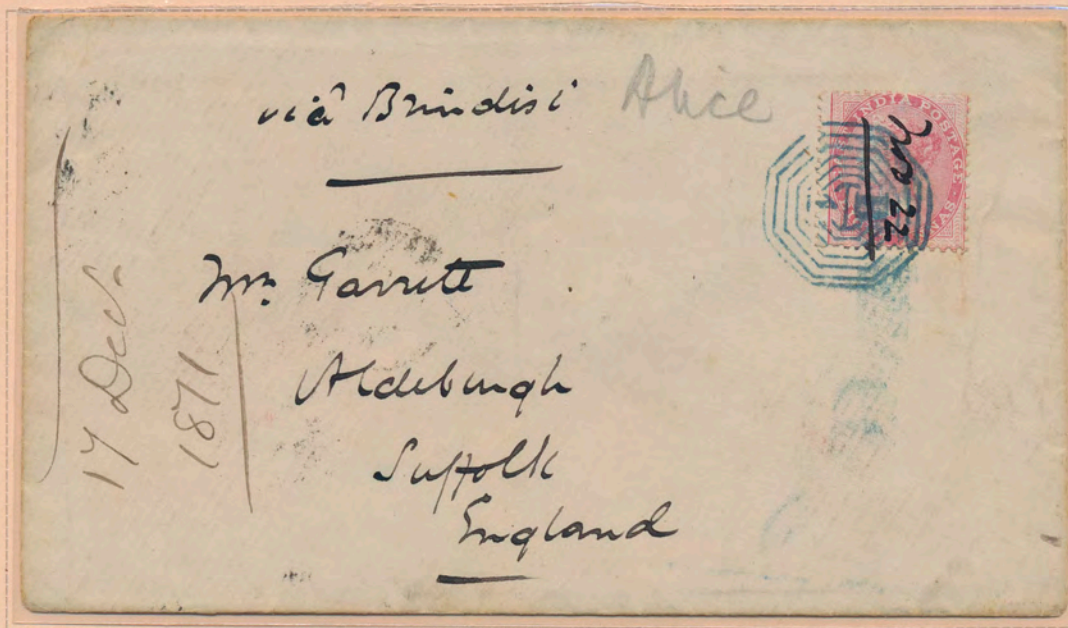 viâ Brindisi
Alice
INDIA POSTAGE
No 22
Mrs Garrett
Aldeburgh
Suffolk
England
17 Dec.
1871